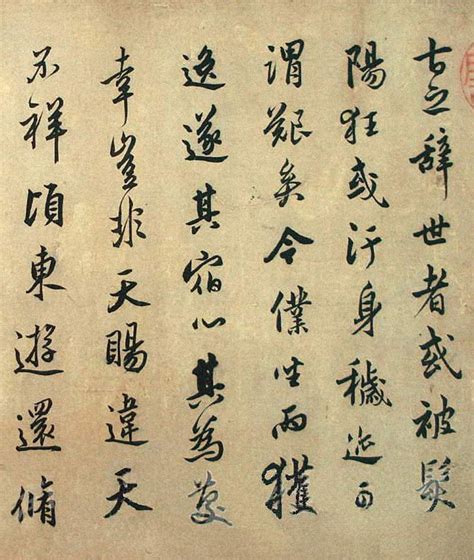 古之辭世者或被髮
陽狂或汙身穢迹可
謂艱矣今僕坐而獲
逸遂其宿心其為慶
幸豈非天賜違天
不祥頃東遊還脩